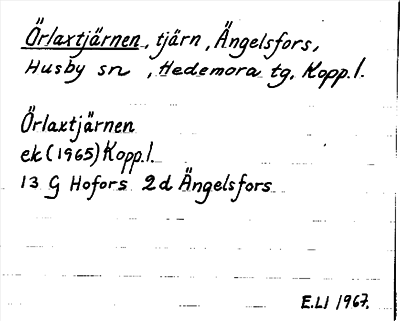 Örlaxtjärnen, tjärn, Ängelsfors,
Husby sn, Hedemora tg, Kopp.l.
Örlaxtjärnen
ek (1965) Kopp.l.
13 G Hofors 2d Ängelsfors
E.Ll 1967.